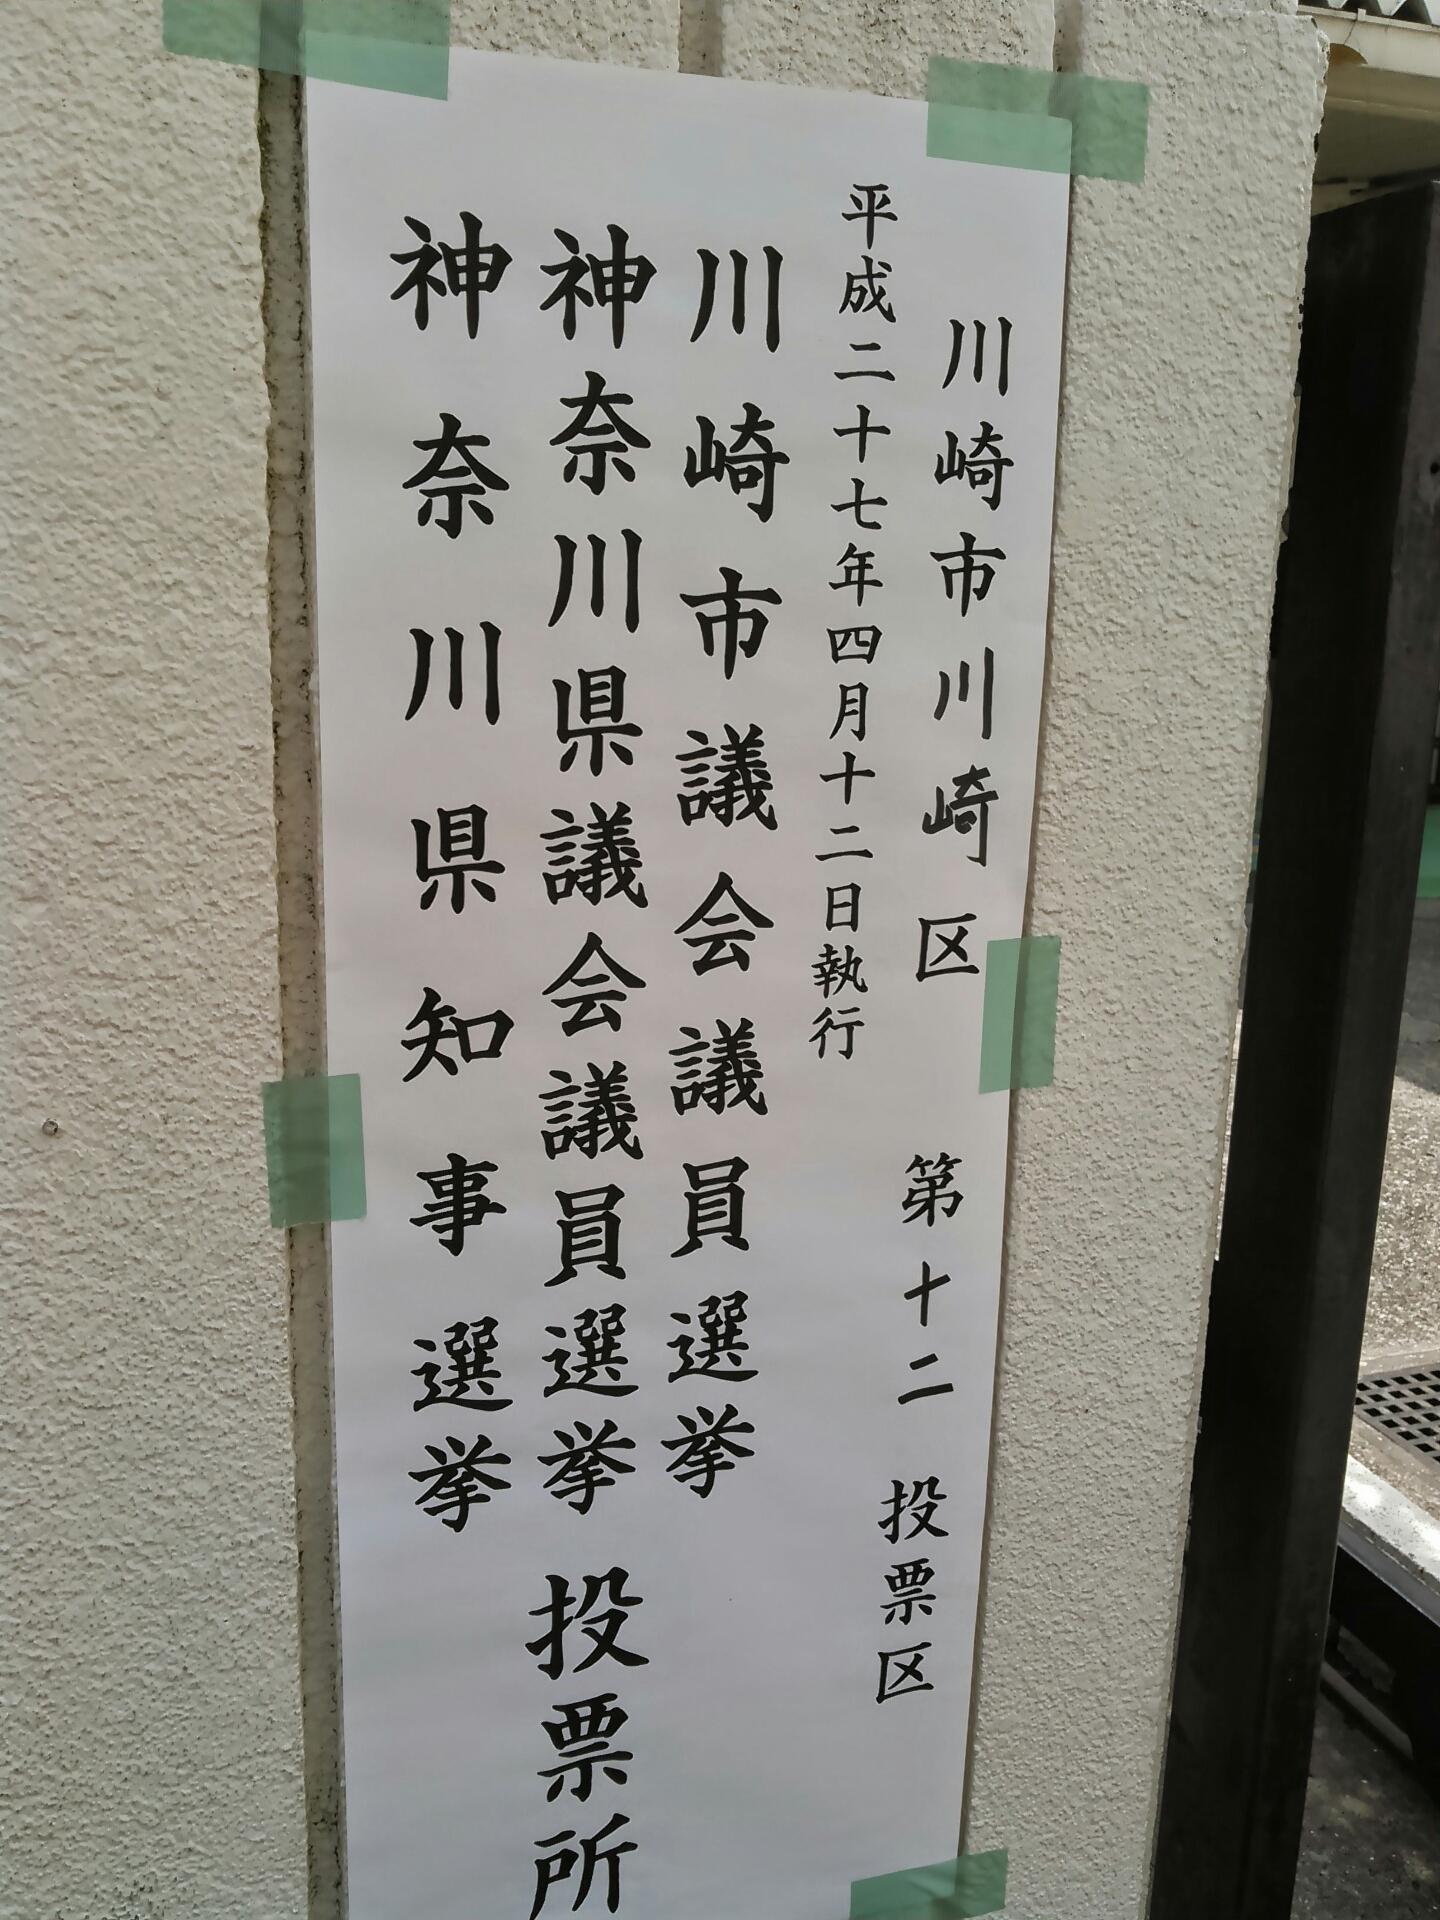 川崎市川崎区 第十二投票区
平成二十七年四月十二日執行
川崎市議会議員選挙
神奈川県議会議員選挙 投票所
神奈川県知事選挙